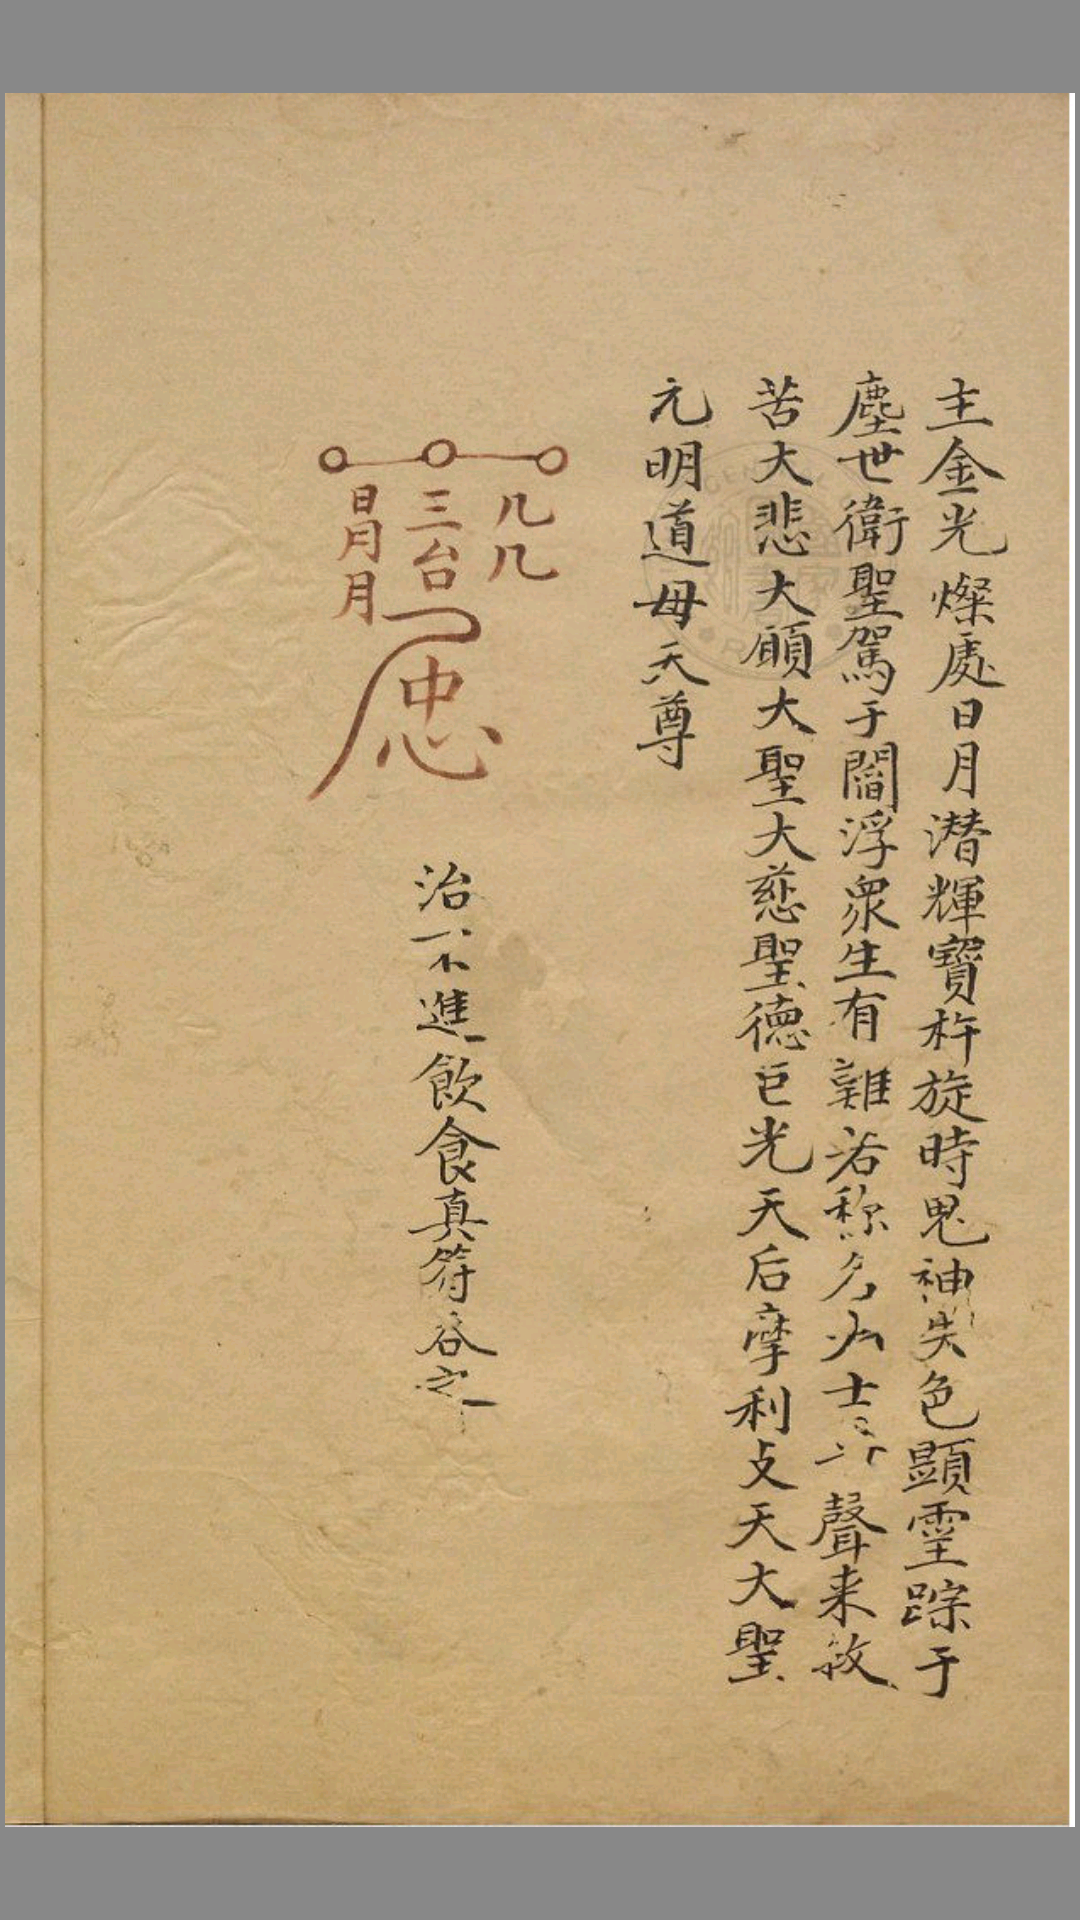 主金光燦處日月潜輝寶杵旋時鬼神失色顯靈踪于
塵世衛聖駕于閻浮眾生有難若称名 士 聲来救
苦大悲大願大聖大慈聖德巨光天后摩利支天大聖
元明道母天尊
几几
三台
日月月
忠
治一不進飲食真符吞之